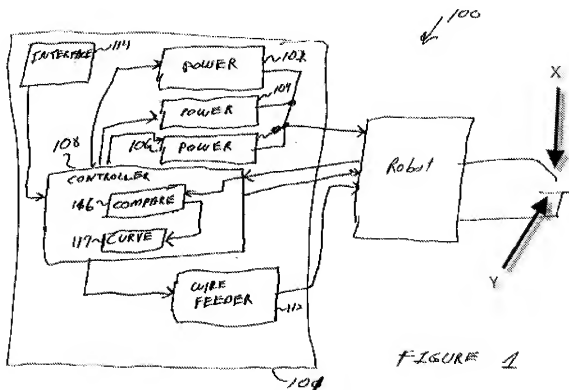 100
INTERFACE 114
POWER 102
POWER 104
106 POWER
108
CONTROLLER
116 COMPARE
117 CURVE
WIRE
FEEDER
112
Robot
X
Y
FIGURE 1